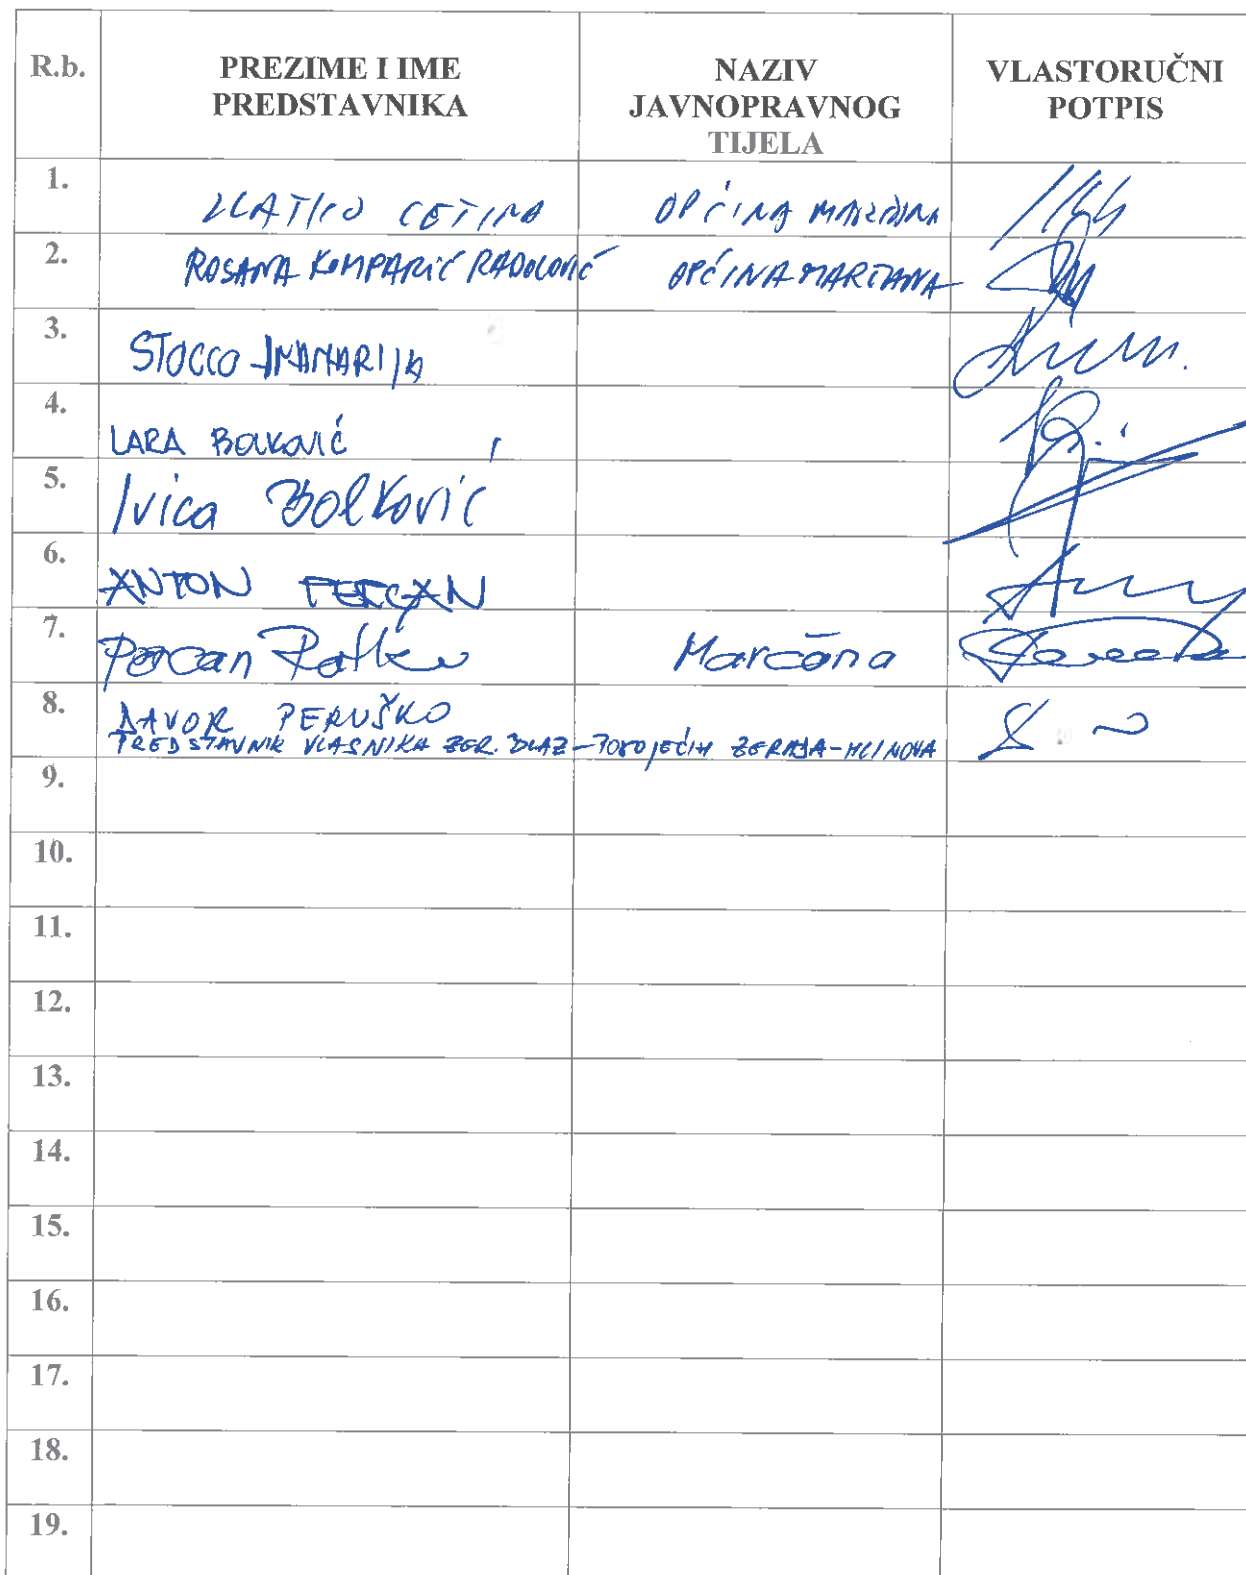 R.b.
PREZIME I IME
PREDSTAVNIKA
NAZIV
JAVNOPRAVNOG
TIJELA
VLASTORUČNI
POTPIS
1. ZLATKO CETINA OPĆINA MARČANA
2. ROSANA KOMPARIĆ RADOLOVIĆ OPĆINA MARČANA
3. STOCCO ANAMARIJA
4. LARA BOLKOVIĆ
5. Ivica Bolković
6. ANTON FERČAN
7. Percan Ratko Marčana
8. DAVOR PERUŠKO
PREDSTAVNIK VLASNIKA ZER. DLAZ - POSTOJEĆIH
9.
10.
11.
12.
13.
14.
15.
16.
17.
18.
19.